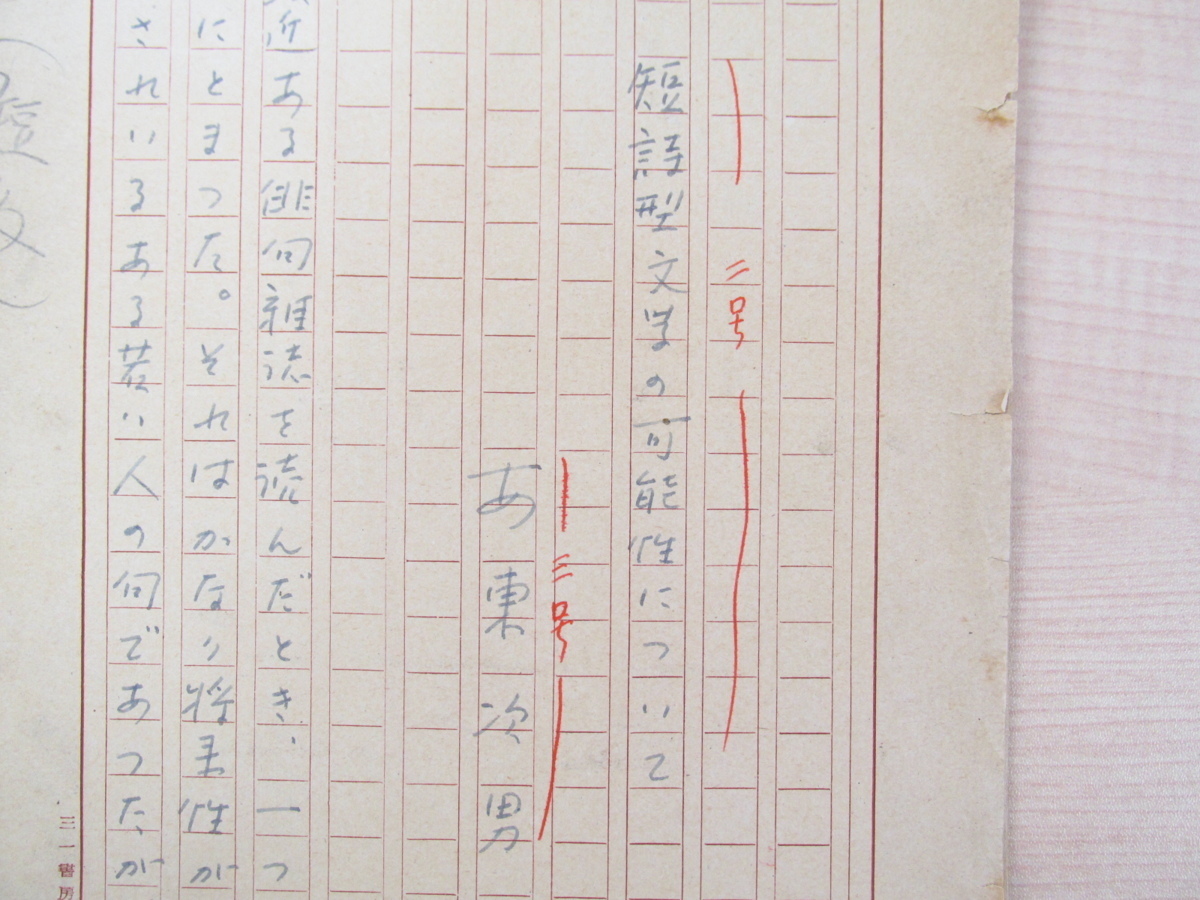 二号
短詩型文学の可能性について
三号
あ東次男
近ある俳句雑誌を読んだとき、一つ
にとまつた。それはかなり将来性が
されいるある若い人の句であつたが
三一書房